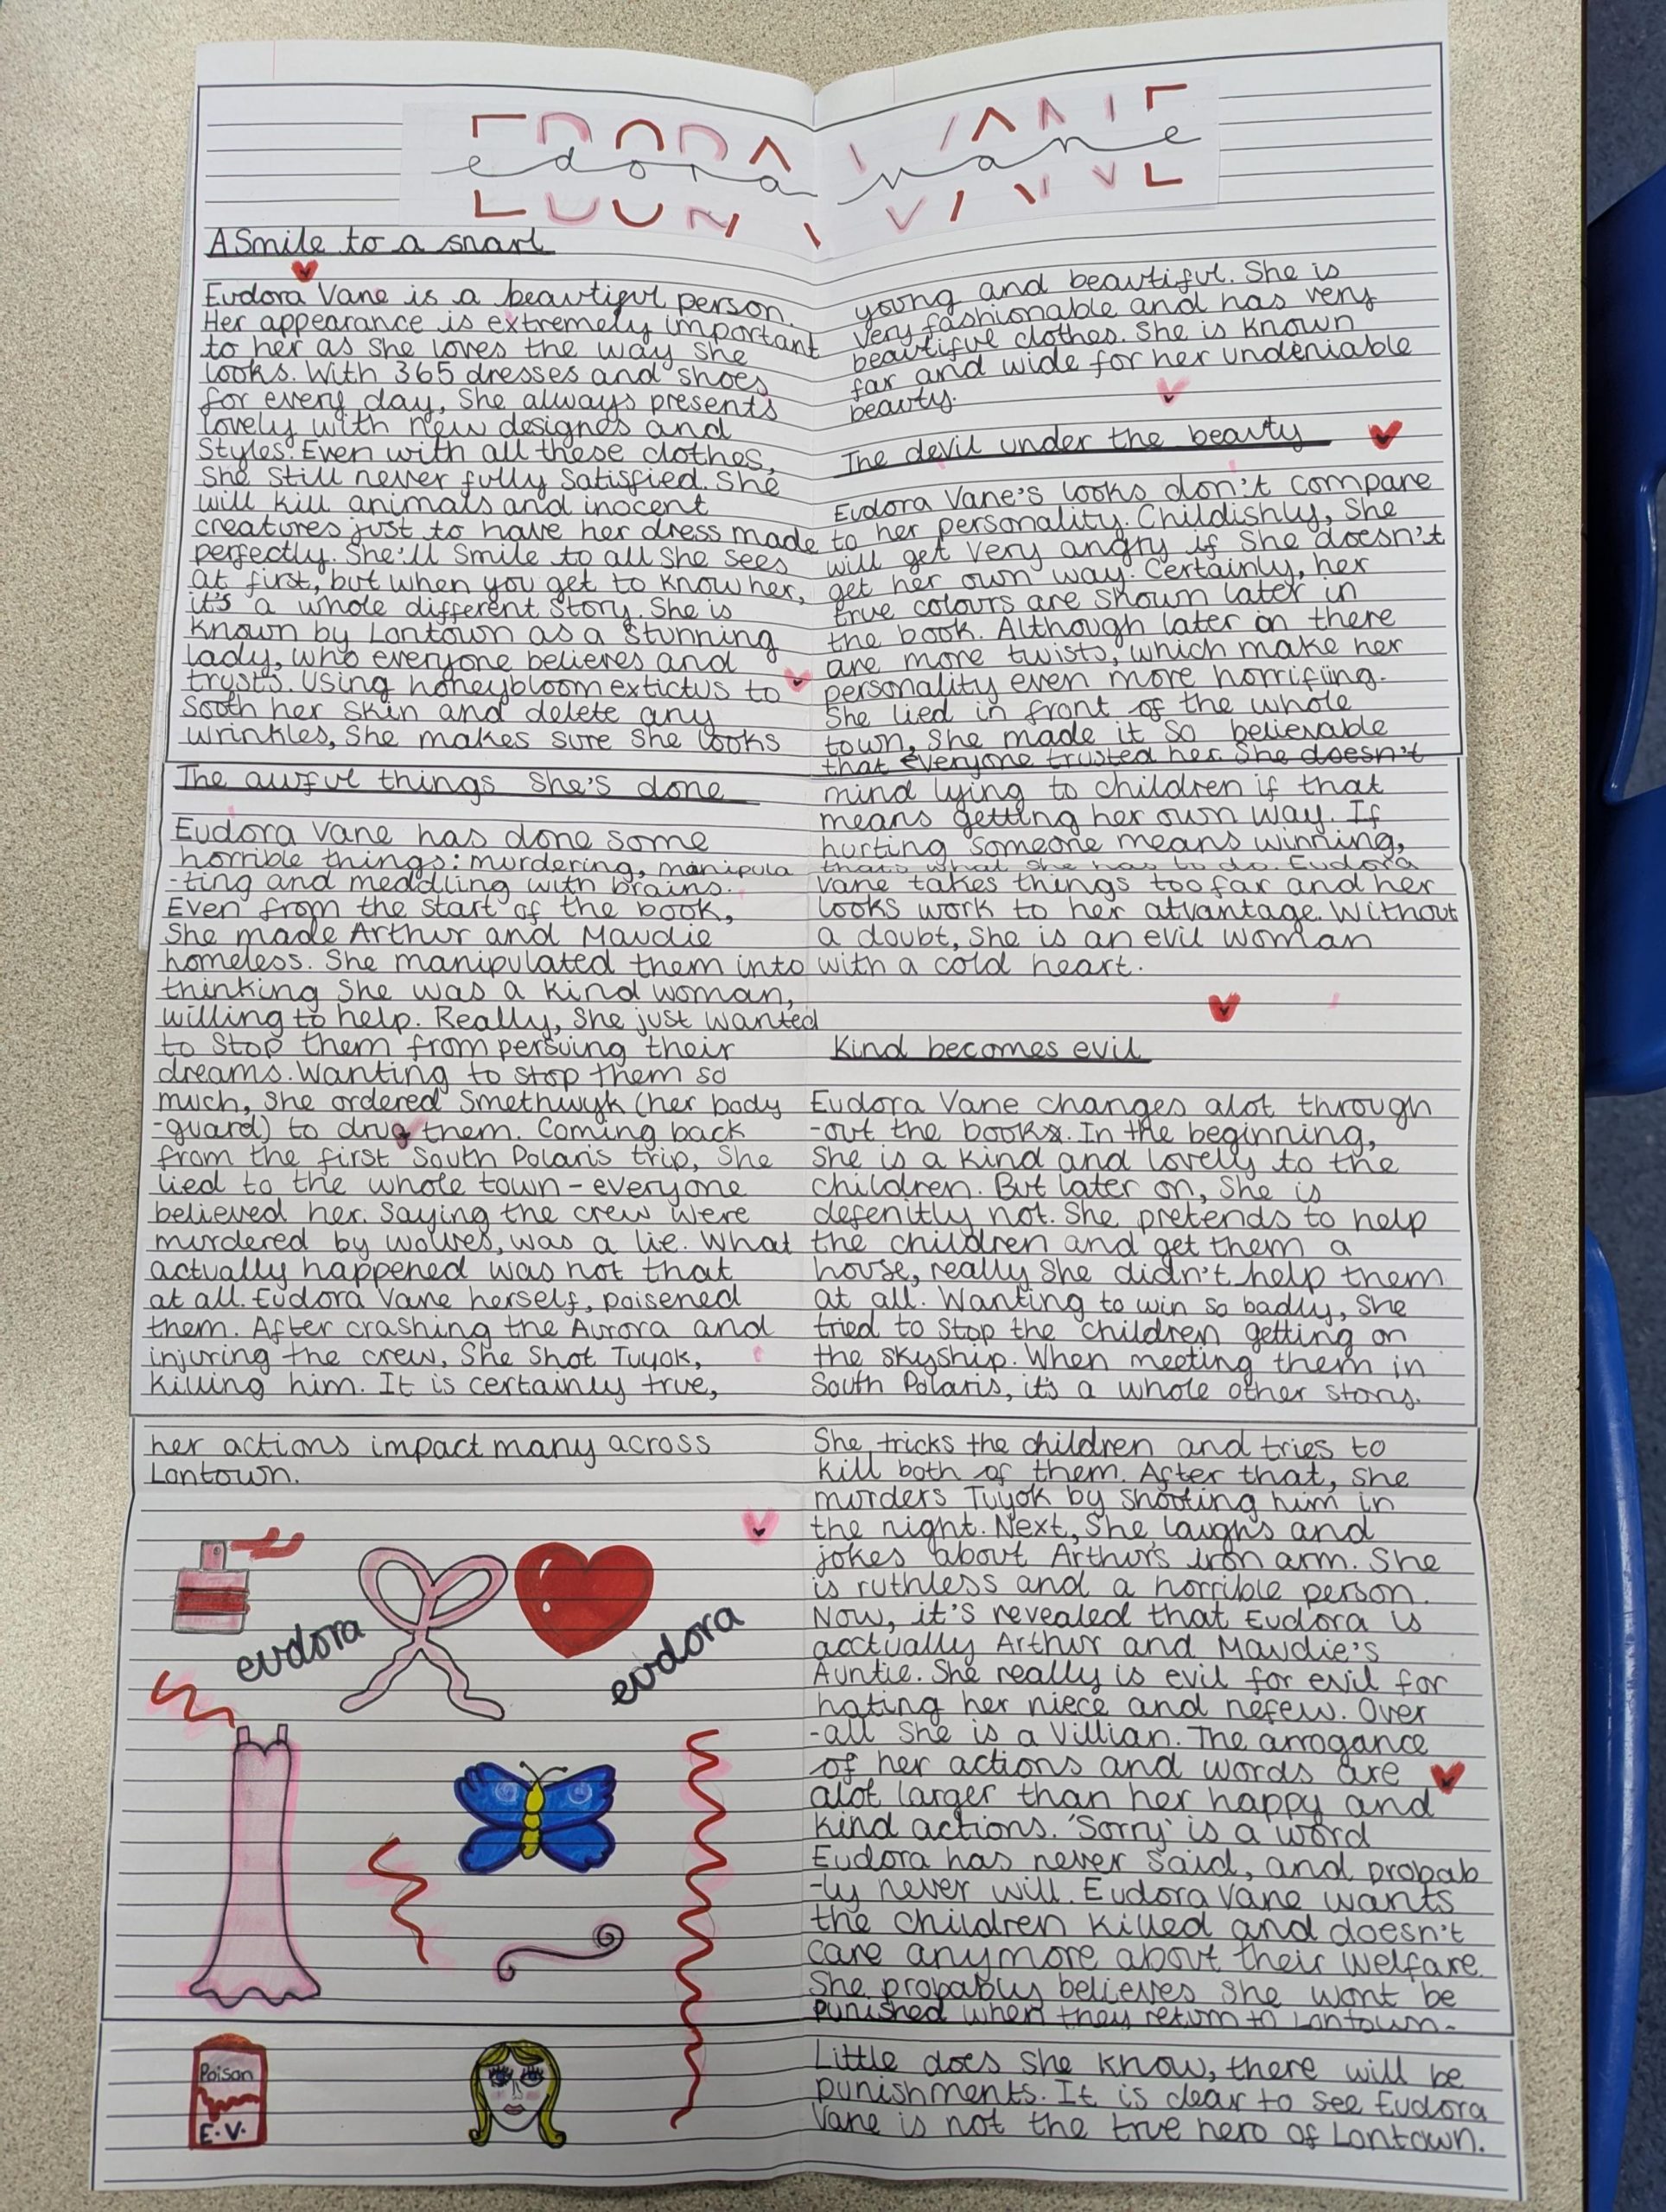 edora vane
A Smile to a snarl
Eudora Vane is a beautiful person.
Her appearance is extremely important
to her as she loves the way she
looks. With 365 dresses and shoes
for every day, She always presents
lovely with new designes and
Styles. Even with all these clothes,
She still never fully Satisfied. She
will kill animals and inocent
creatures just to have her dress made
perfectly. She'll Smile to all She sees
at first, but when you get to know her,
it's a whole different story. She is
known by Lontown as a stunning
lady, who everyone believes and
trusts. Using honeybloom extictus to
sooth her skin and delete any
wrinkles, She makes sure she looks
young and beautiful. She is
very fashionable and has very
beautiful clothes. She is known
far and wide for her undeniable
beauty.
The awful things She's done
Eudora Vane has done some
horrible things: murdering, manipula
-ting and meddling with brains.
Even from the start of the book,
She made Arthur and Maudie
homeless. She manipulated them into
thinking She was a kind woman,
willing to help. Really, She just wanted
to stop them from persuing their
dreams. Wanting to stop them so
much, she ordered Smethwyk (her body
-guard) to drug them. Coming back
from the first South Polaris trip, She
lied to the whole town - everyone
believed her. Saying the crew were
murdered by wolves, was a lie. What
actually happened was not that
at all. Eudora Vane herself, poisened
them. After crashing the Aurora and
injuring the crew, She Shot Tuyok,
killing him. It is certainly true,
her actions impact many across
Lontown.
eudora
eudora
Poison
E.V.
The devil under the beauty
Eudora Vane's looks don't compare
to her personality. Childishly, She
will get very angry if She doesn't
get her own way. Certainly, her
true colours are shown later in
the book. Although later on there
are more twists, which make her
personality even more horrifiing.
She lied in front of the whole
town, She made it so believable
that everyone trusted her. She doesn't
mind lying to children if that
means getting her own way. If
hurting someone means winning,
thats what she has to do. Eudora
Vane takes things too far and her
looks work to her atvantage. Without
a doubt, She is an evil woman
with a cold heart.
Kind becomes evil
Eudora Vane changes alot through
-out the books. In the beginning,
She is a kind and lovely to the
children. But later on, She is
defenitly not. She pretends to help
the children and get them a
house, really She didn't help them
at all. Wanting to win so badly, She
tried to stop the children getting on
the skyship. When meeting them in
South Polaris, it's a whole other story.
She tricks the children and tries to
kill both of them. After that, she
murders Tuyok by shooting him in
the night. Next, She laughs and
jokes about Arthur's iron arm. She
is ruthless and a horrible person.
Now, it's revealed that Eudora is
acctually Arthur and Maudie's
Auntie. She really is evil for evil for
hating her niece and nefew. Over
-all She is a Villian. The arrogance
of her actions and words are
alot larger than her happy and
kind actions. 'Sorry' is a word
Eudora has never said, and probab
-ly never will. Eudora Vane wants
the children killed and doesn't
care anymore about their welfare.
She probably believes She wont be
punished when they return to Lontown.
Little does She know, there will be
punishments. It is clear to see Eudora
Vane is not the true hero of Lontown.